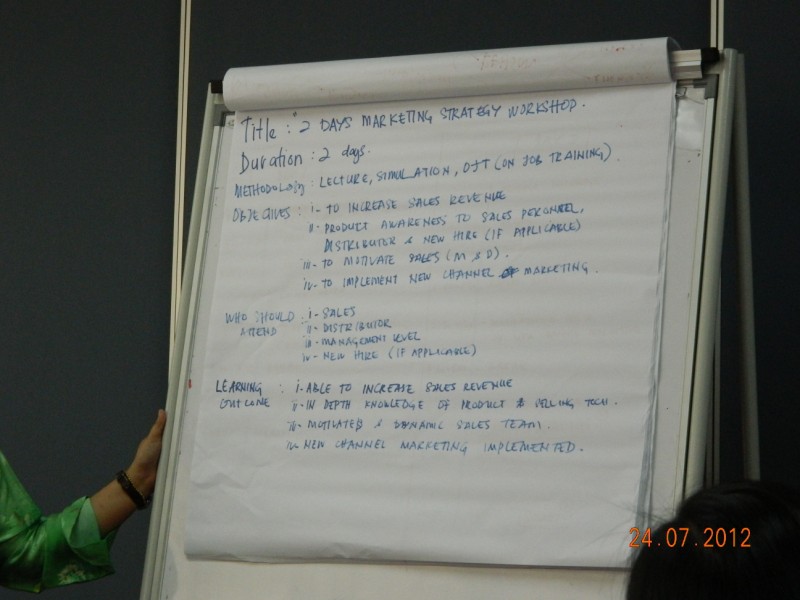 Title : 2 DAYS MARKETING STRATEGY WORKSHOP.
Duration : 2 days.
METHODOLOGY : LECTURE, SIMULATION, OJT (ON JOB TRAINING)
OBJECTIVES : i- TO INCREASE SALES REVENUE
ii- PRODUCT AWARENESS TO SALES PERSONNEL,
DISTRIBUTOR & NEW HIRE (IF APPLICABLE)
iii- TO MOTIVATE SALES (M & D).
iv- TO IMPLEMENT NEW CHANNEL OF MARKETING.
WHO SHOULD : i- SALES
ATTEND ii- DISTRIBUTOR
iii- MANAGEMENT LEVEL
iv- NEW HIRE (IF APPLICABLE)
LEARNING : i- ABLE TO INCREASE SALES REVENUE
OUTCOME ii- IN DEPTH KNOWLEDGE OF PRODUCT & SELLING TECH.
iii- MOTIVATED & DYNAMIC SALES TEAM.
iv- NEW CHANNEL MARKETING IMPLEMENTED.
24.07.2012